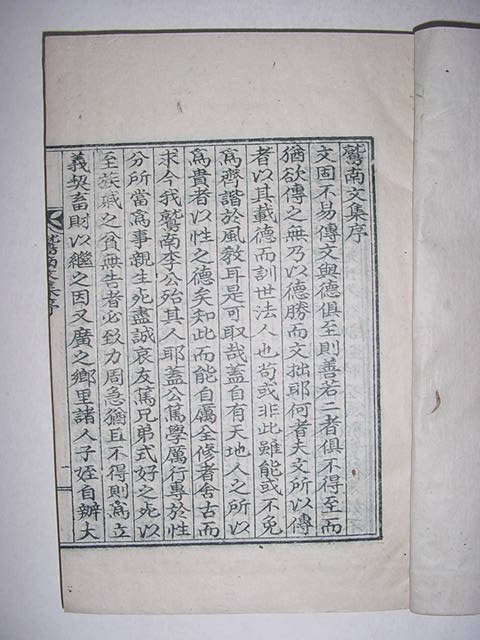 鷲南文集序
文固不易傳文與德俱至則善若二者俱不得至而
猶欲傳之無乃以德勝而文拙耶何者夫文所以傳
者以其載德而訓世法人也苟或非此雖能或不免
爲齊諧於風敎耳是可取哉蓋自有天地人之所以
爲貴者以性之德矣知此而能自厲全修者舍古而
求今我鷲南李公殆其人耶蓋公篤學厲行專於性
分所當爲事親生死盡誠哀友篤兄弟式好之死以
至族戚之貧無告者必致力周急猶且不得則爲立
義契畜財以繼之因又廣之鄕里諸人子姪自辦大
鷲南集序
一